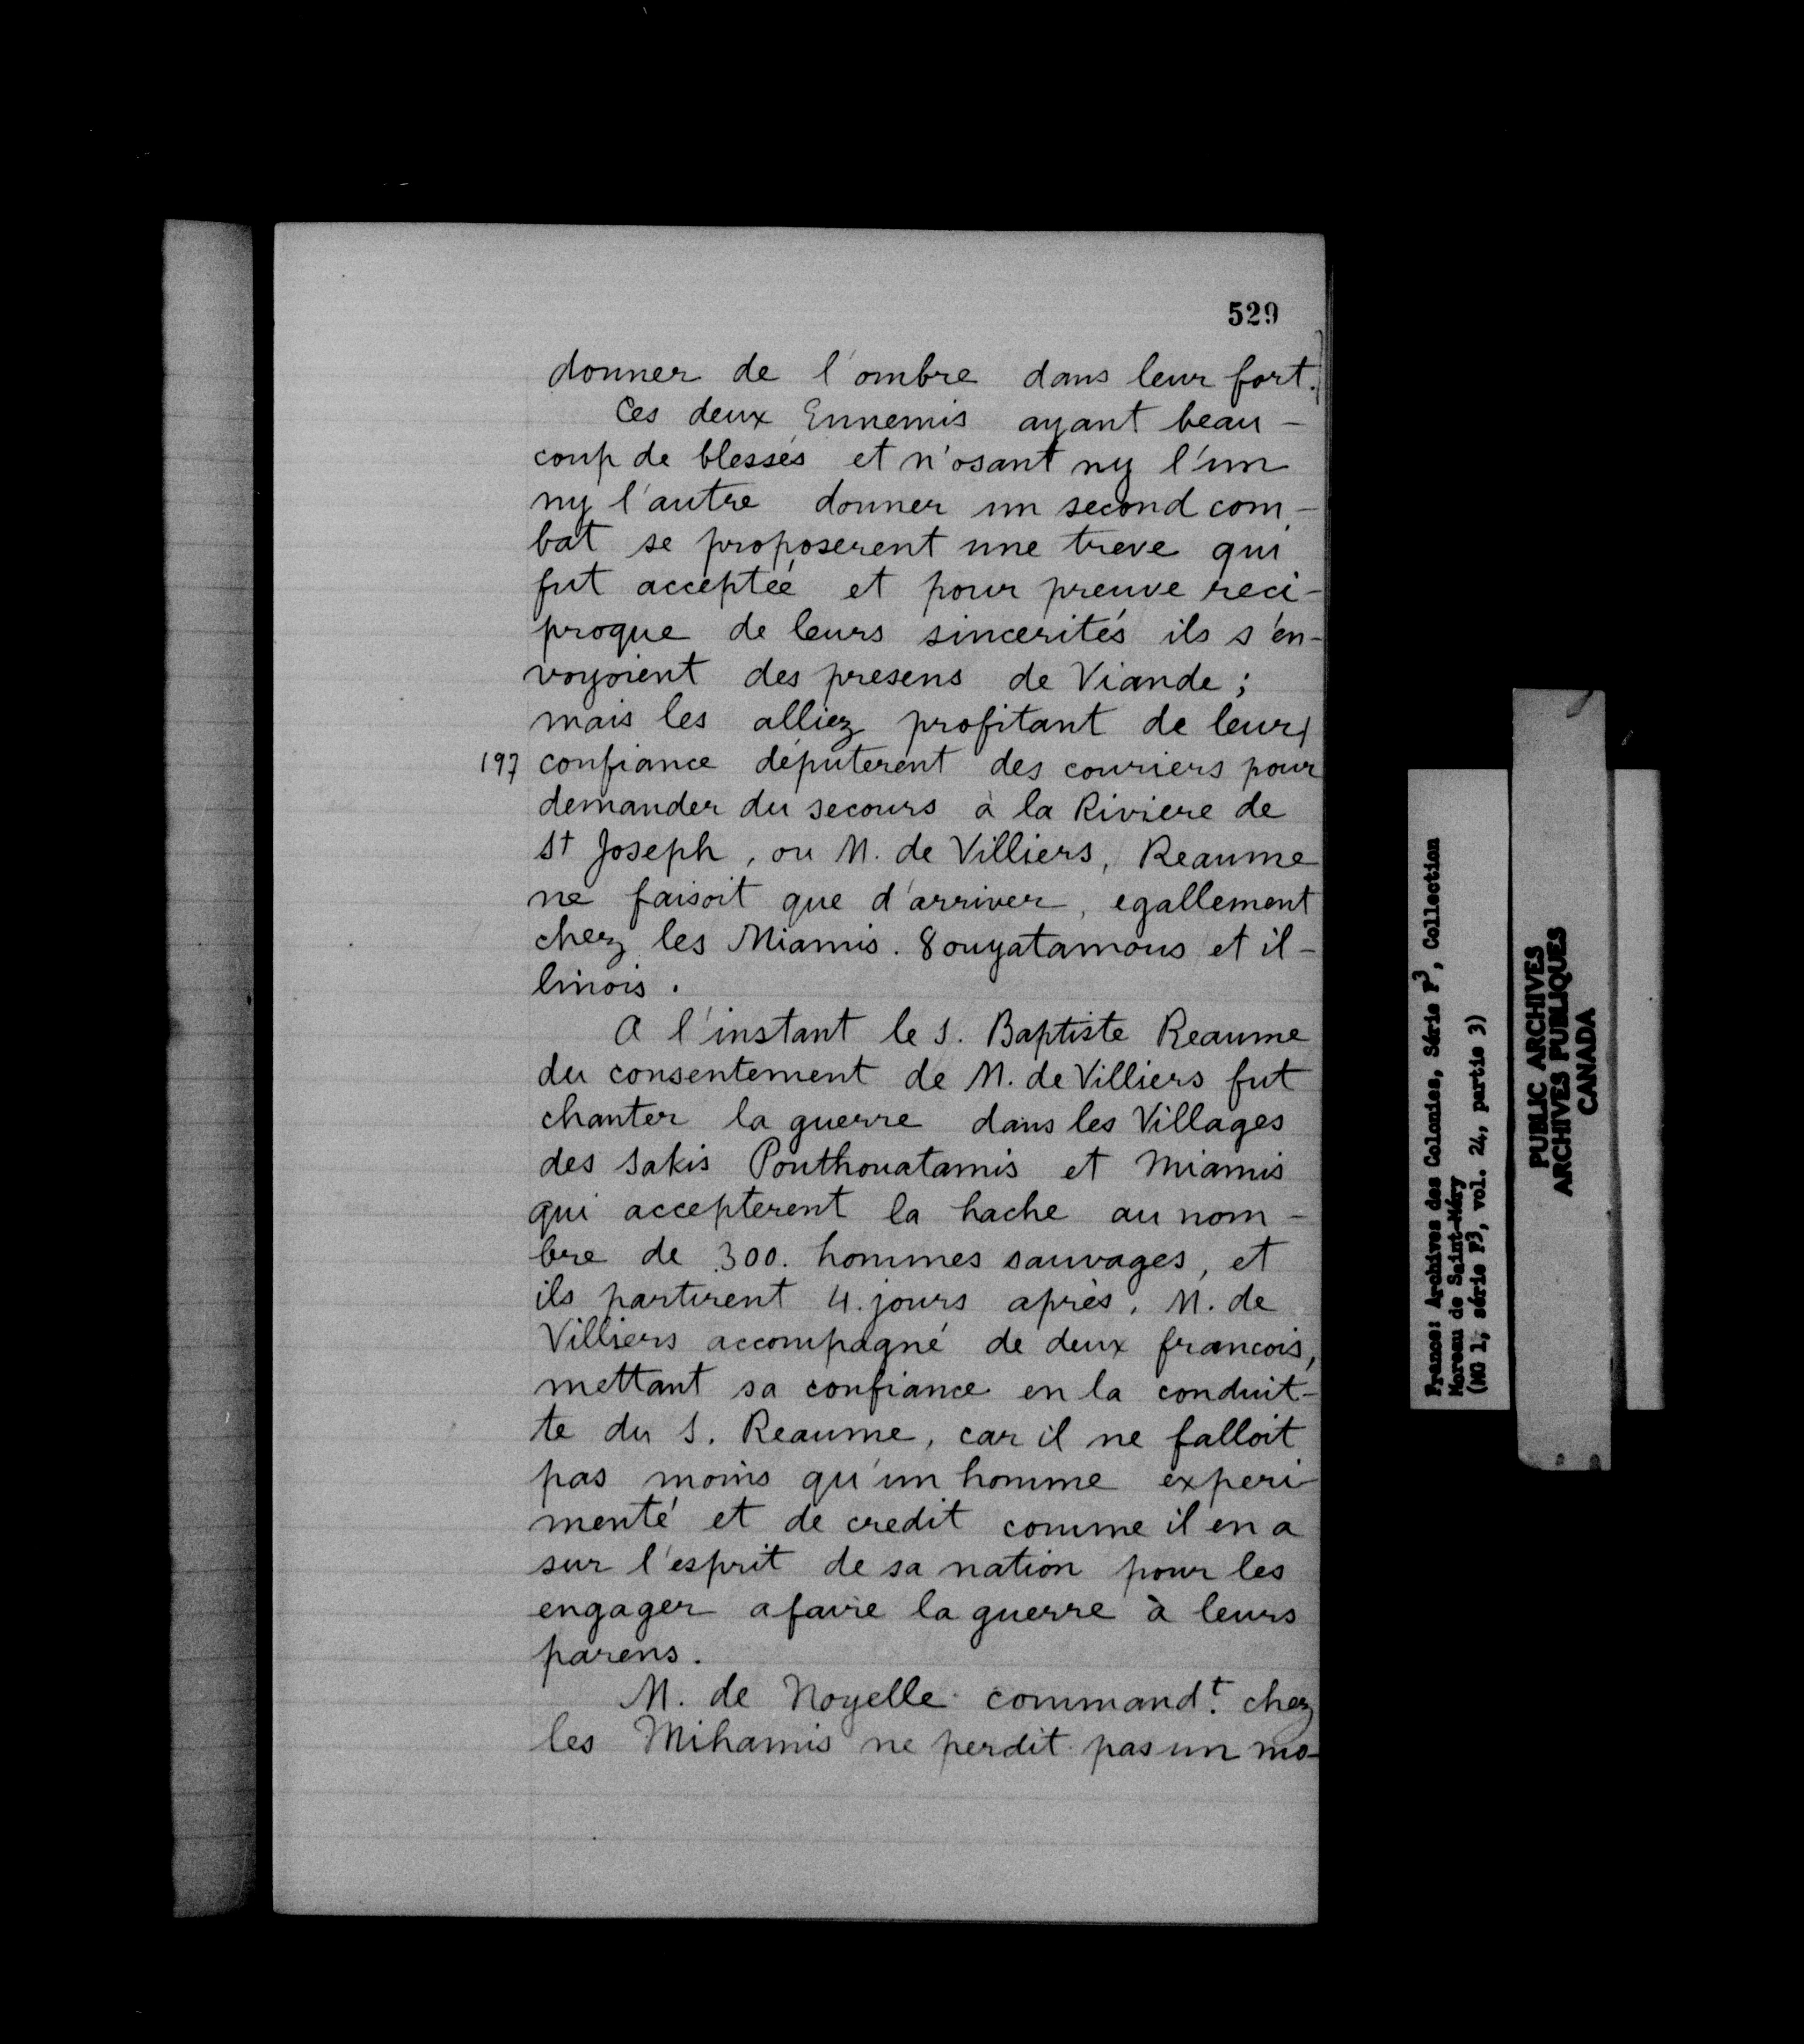 529
donner de l'ombre dans leur fort.
Ces deux Ennemis ayant beau-
coup de blessés et n'osant ny l'un
ny l'autre donner un second com-
bat se proposerent une treve qui
fut acceptée et pour preuve reci-
proque de leurs sincerités ils s'en-
voyoient des presens de Viande;
mais les alliez profitant de leur
197 confiance députerent des couriers pour
demander du secours à la Riviere de
St Joseph, ou M. de Villiers, Reaume
ne faisoit que d'arriver, egallement
chez les Miamis. 8ouyatamons et il-
linois.
A l'instant le S. Baptiste Reaume
du consentement de M. de Villiers fut
chanter la guerre dans les Villages
des Sakis Pouthouatamis et Miamis
qui accepterent la hache au nom-
bre de 300. hommes sauvages, et
ils partirent 4. jours après. M. de
Villiers accompagné de deux francois,
mettant sa confiance en la conduit-
te du S. Reaume, car il ne falloit
pas moins qu'un homme experi-
menté et de credit comme il en a
sur l'esprit de sa nation pour les
engager a faire la guerre à leurs
parens.
M. de Noyelle command.t chez
les Mihamis ne perdit pas un mo-
France: Archives des Colonies, Série F3, Collection
Moreau de Saint-Méry
(MG 1, série F3, vol. 24, partie 3)
PUBLIC ARCHIVES
ARCHIVES PUBLIQUES
CANADA